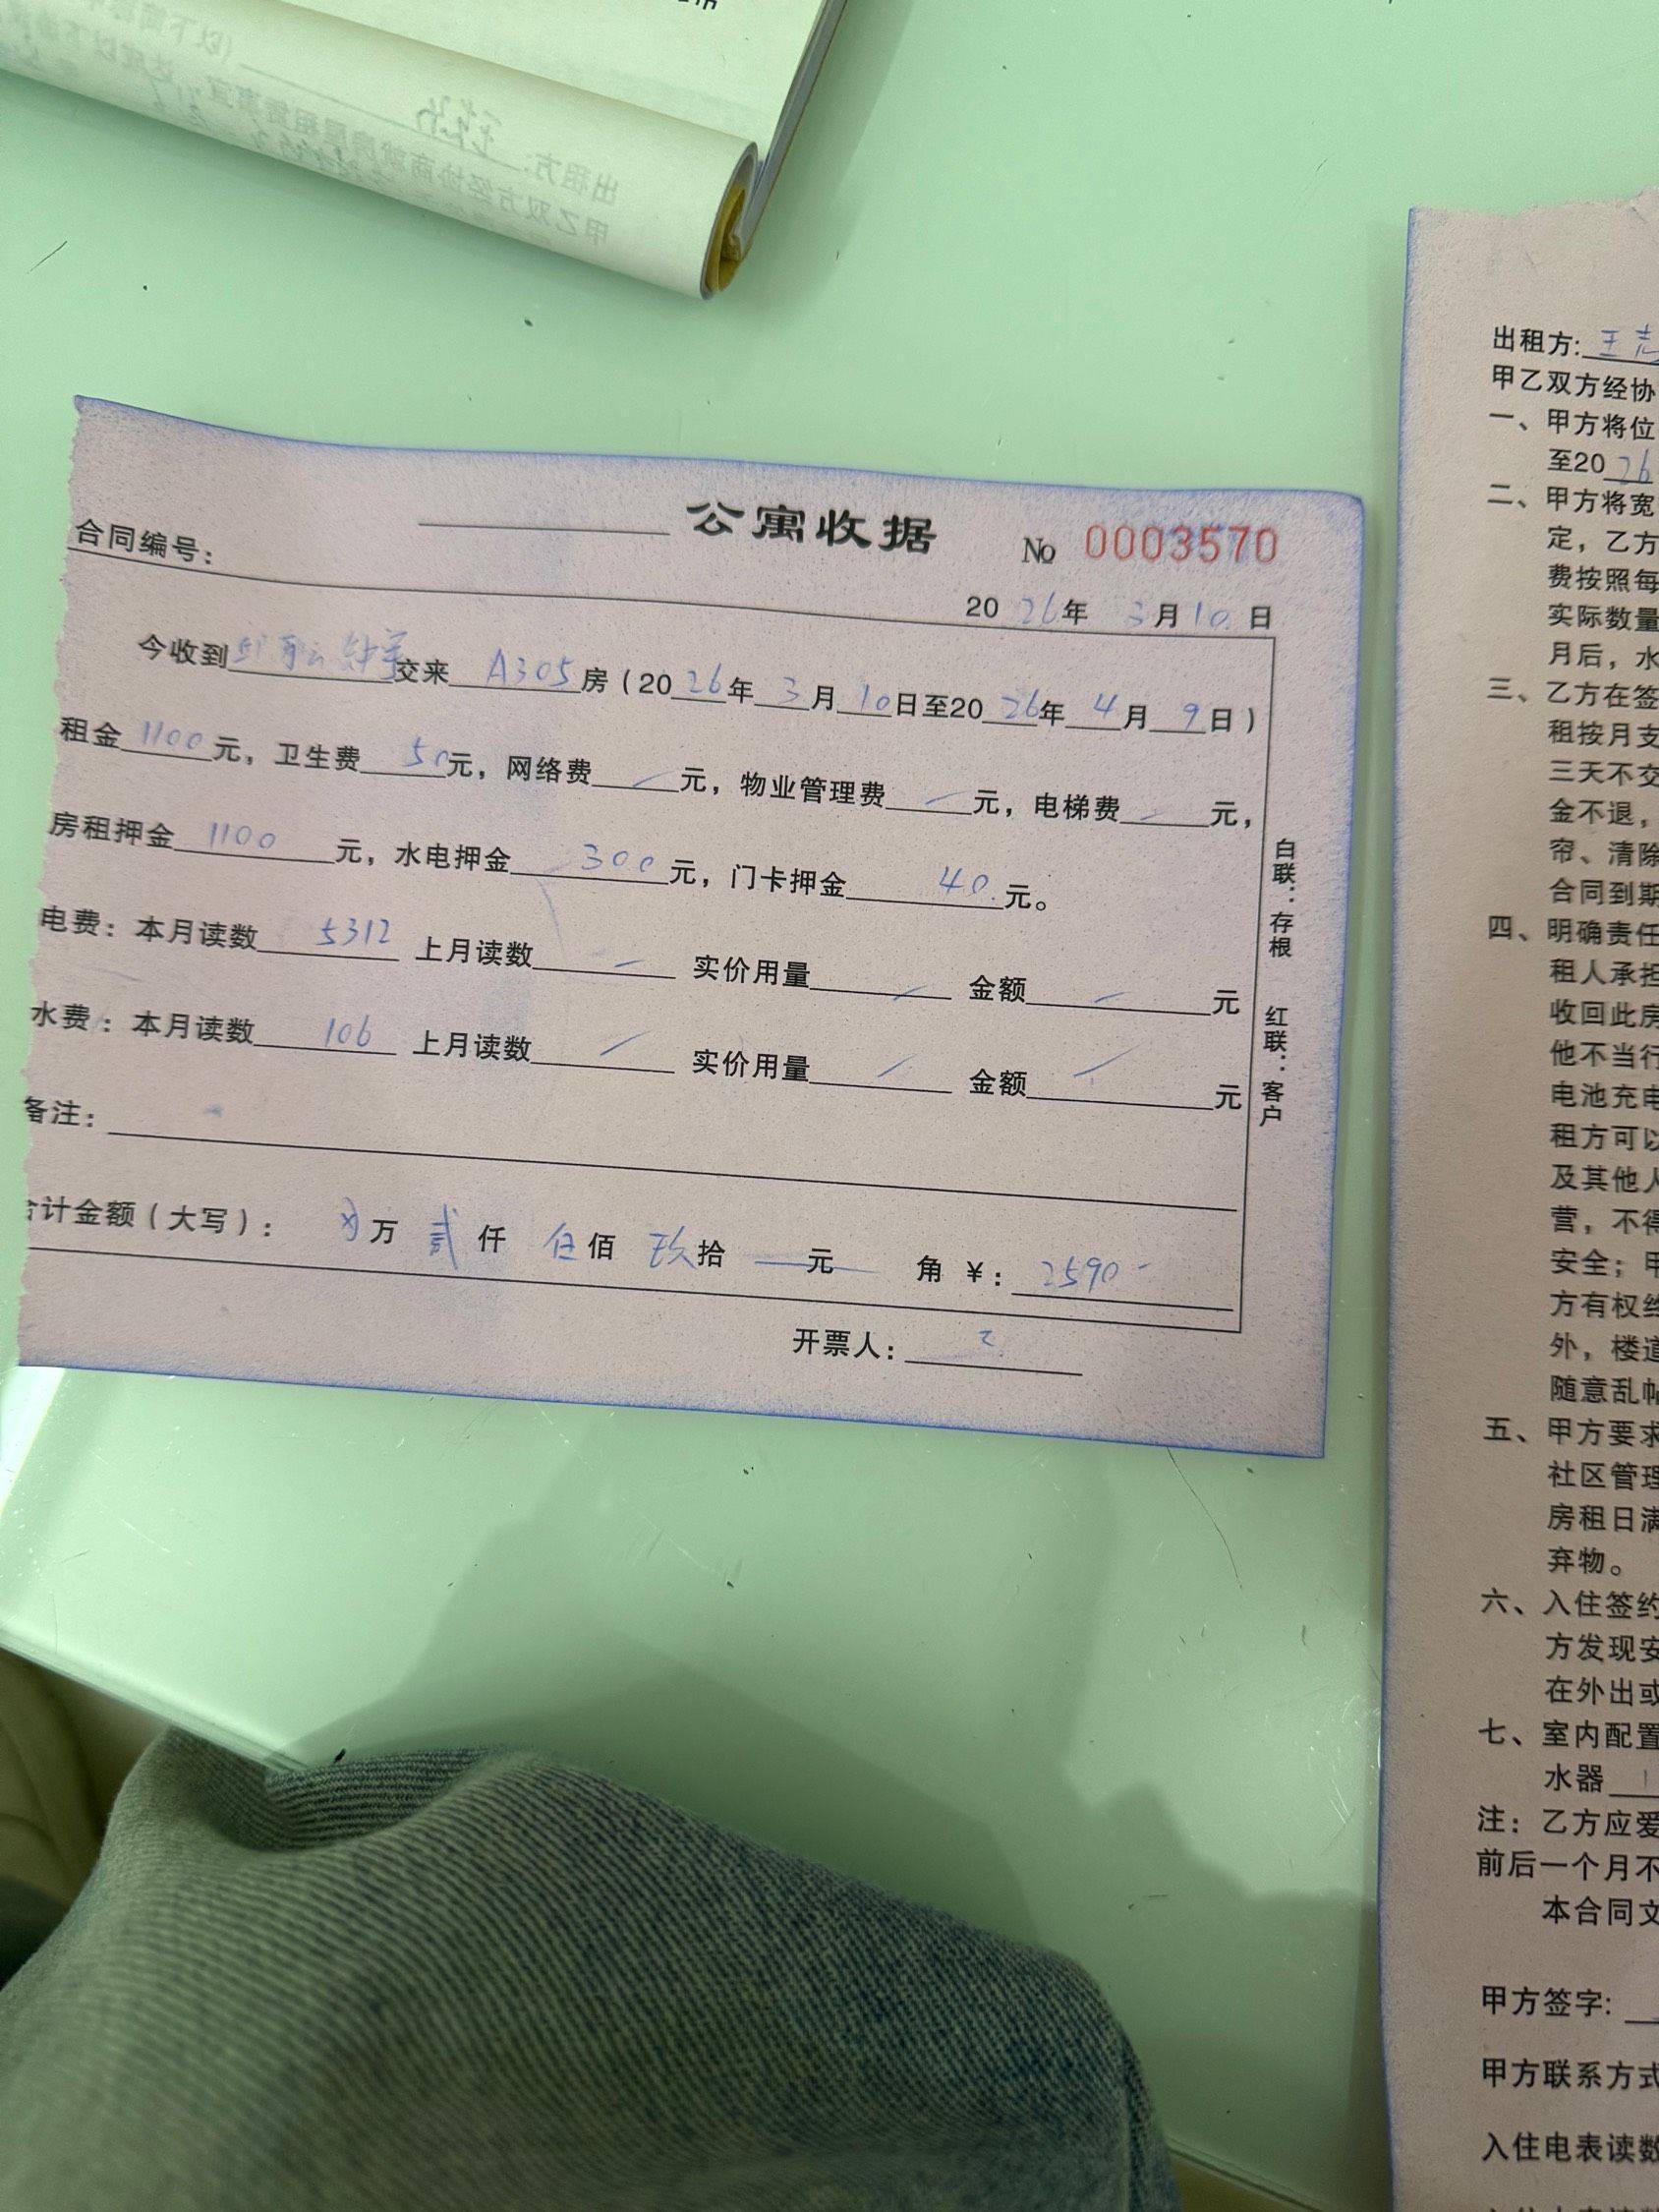 公寓收据
No 0003570
合同编号:
2026年3月10日
今收到 交来 A305 房(2026年3月10日至2026年4月9日)
租金1100元,卫生费50元,网络费/元,物业管理费/元,电梯费/元,
房租押金1100元,水电押金300元,门卡押金40元。
电费:本月读数5312 上月读数/ 实价用量/ 金额/元
水费:本月读数106 上月读数/ 实价用量/ 金额/元
备注:
合计金额(大写): 万 贰仟 伍佰 玖拾 元 角 ¥:2590-
开票人:
白联:存根 红联:客户
出租方:
甲乙双方经协商就房屋租赁事宜,达成以下
出租方:王志
甲乙双方经协
一、甲方将位
至2026
二、甲方将宽
定,乙方
费按照每
实际数量
月后,水
三、乙方在签
租按月支
三天不交
金不退,
帘、清除
合同到期
四、明确责任
租人承担
收回此房
他不当行
电池充电
租方可以
及其他人
营,不得
安全;甲
方有权终
外,楼道
随意乱帖
五、甲方要求
社区管理
房租日满
弃物。
六、入住签约
方发现安
在外出或
七、室内配置
水器
注:乙方应爱
前后一个月不
本合同文
甲方签字:
甲方联系方式
入住电表读数